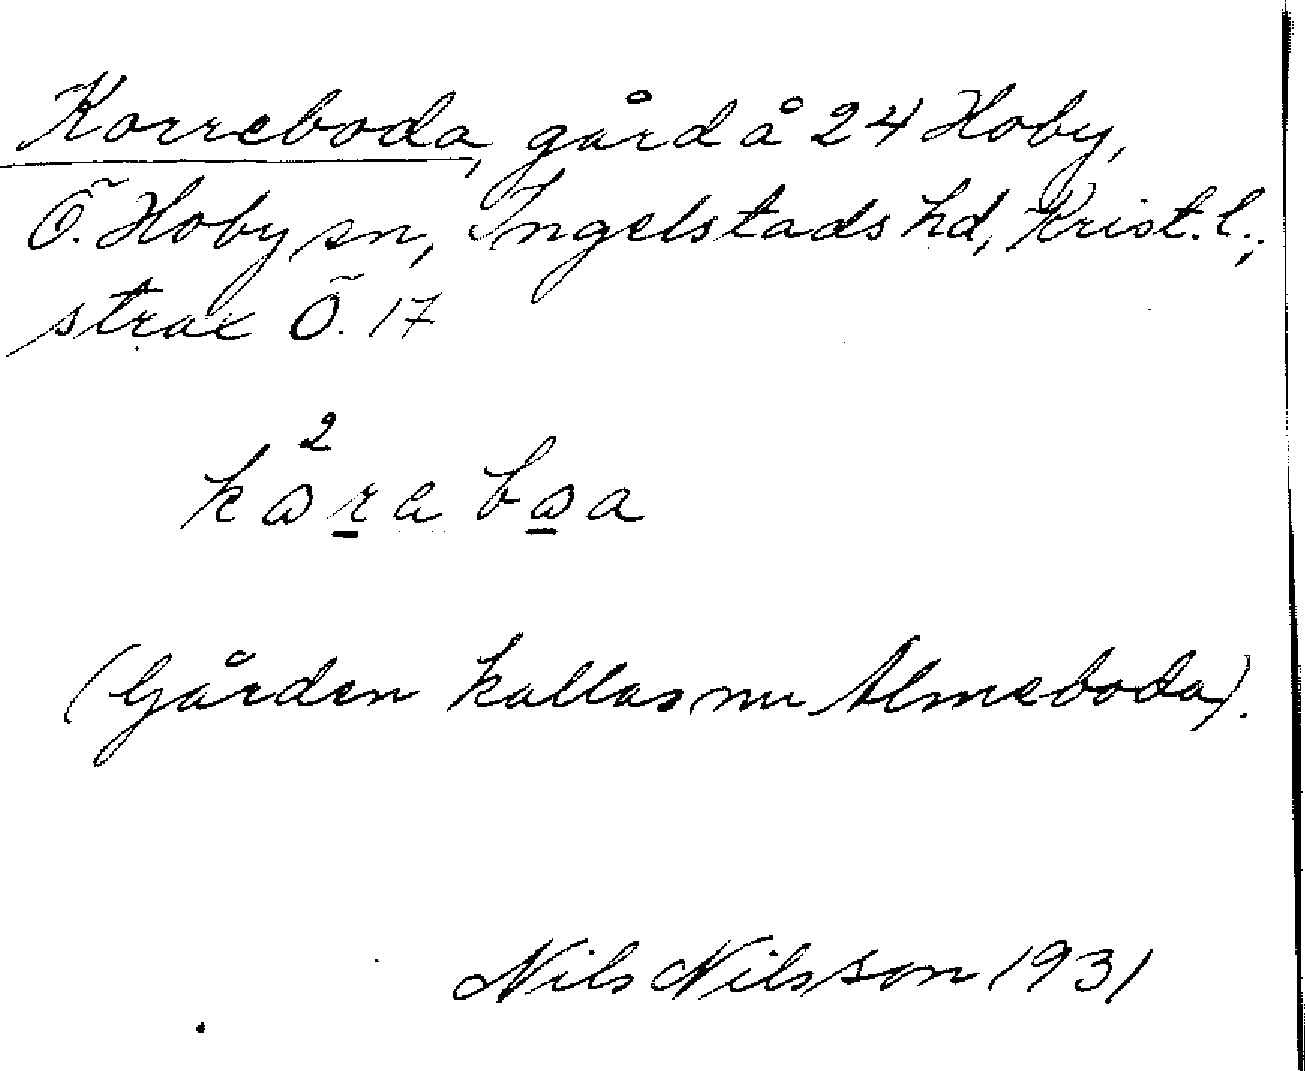 Korreboda, gård å 24 Hoby,
Ö. Hoby sn, Ingelstads hd, Krist. l.;
strax Ö. 17
2
(Gården kallas nu Almeboda).
Nils Nilsson 1931